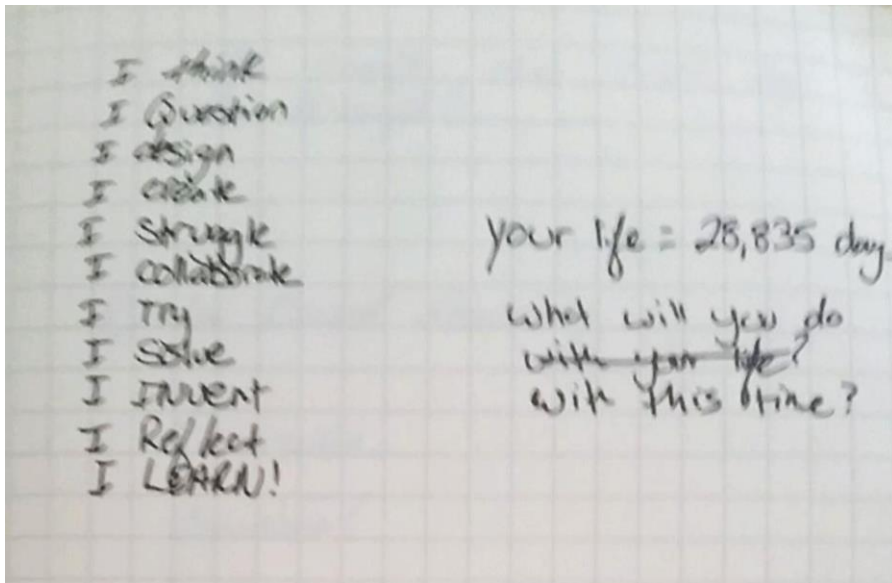 I think
I Question
I design
I create
I struggle
I collaborate
I Try
I Solve
I Invent
I Reflect
I LEARN!
your life = 28,835 day
what will you do
with your life?
with this time?